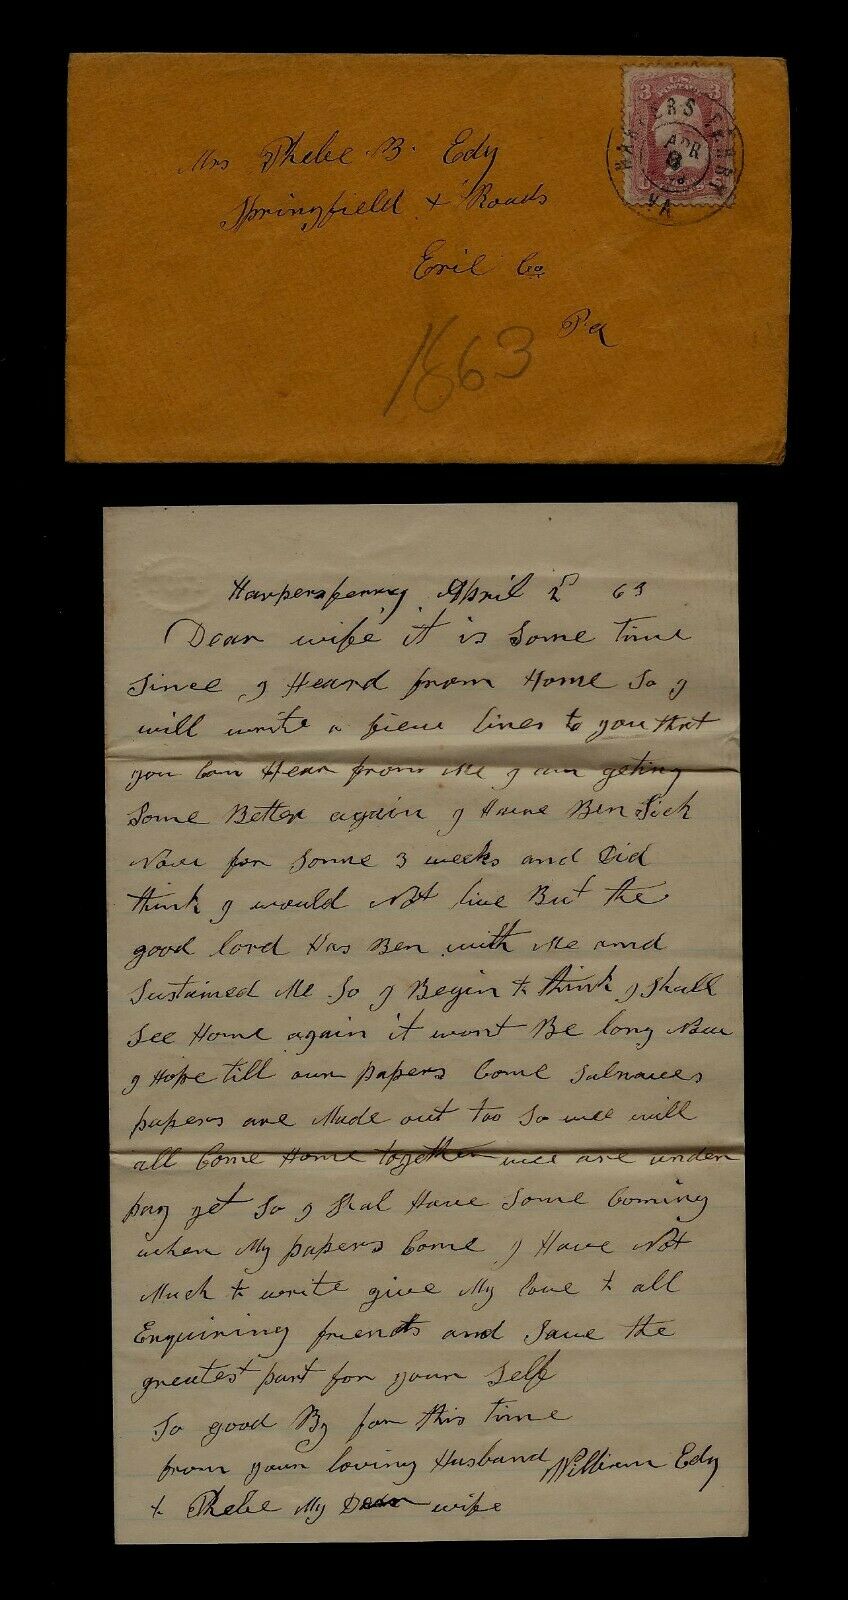 Mrs Phebe B. Edy
Springfield + Roads
Erie Co
Pa
1863
3 U.S. POSTAGE 3
HARPERS FERRY
APR
VA
Harpersferry April 2d 63
Dear wife it is Some time
Since I Heard from Home So I
will write a fiew lines to you that
you Can Hear from Me I am geting
Some Better again I Have Ben Sick
Now for Some 3 weeks and Did
think I would Not live But the
good lord Has Ben with Me and
Sustained Me So I Begin to think I Shall
See Home again it wont Be long Now
I Hope till our papers Come
papers are Made out too So wee will
all Come Home together wee are under
pay yet So I Shal Have Some Coming
when My papers Come I Have Not
Much to write give My love to all
Enquiring friends and Save the
greatest part for your Self
So good By for this time
from your loving Husband William Edy
to Phebe My Dear wife